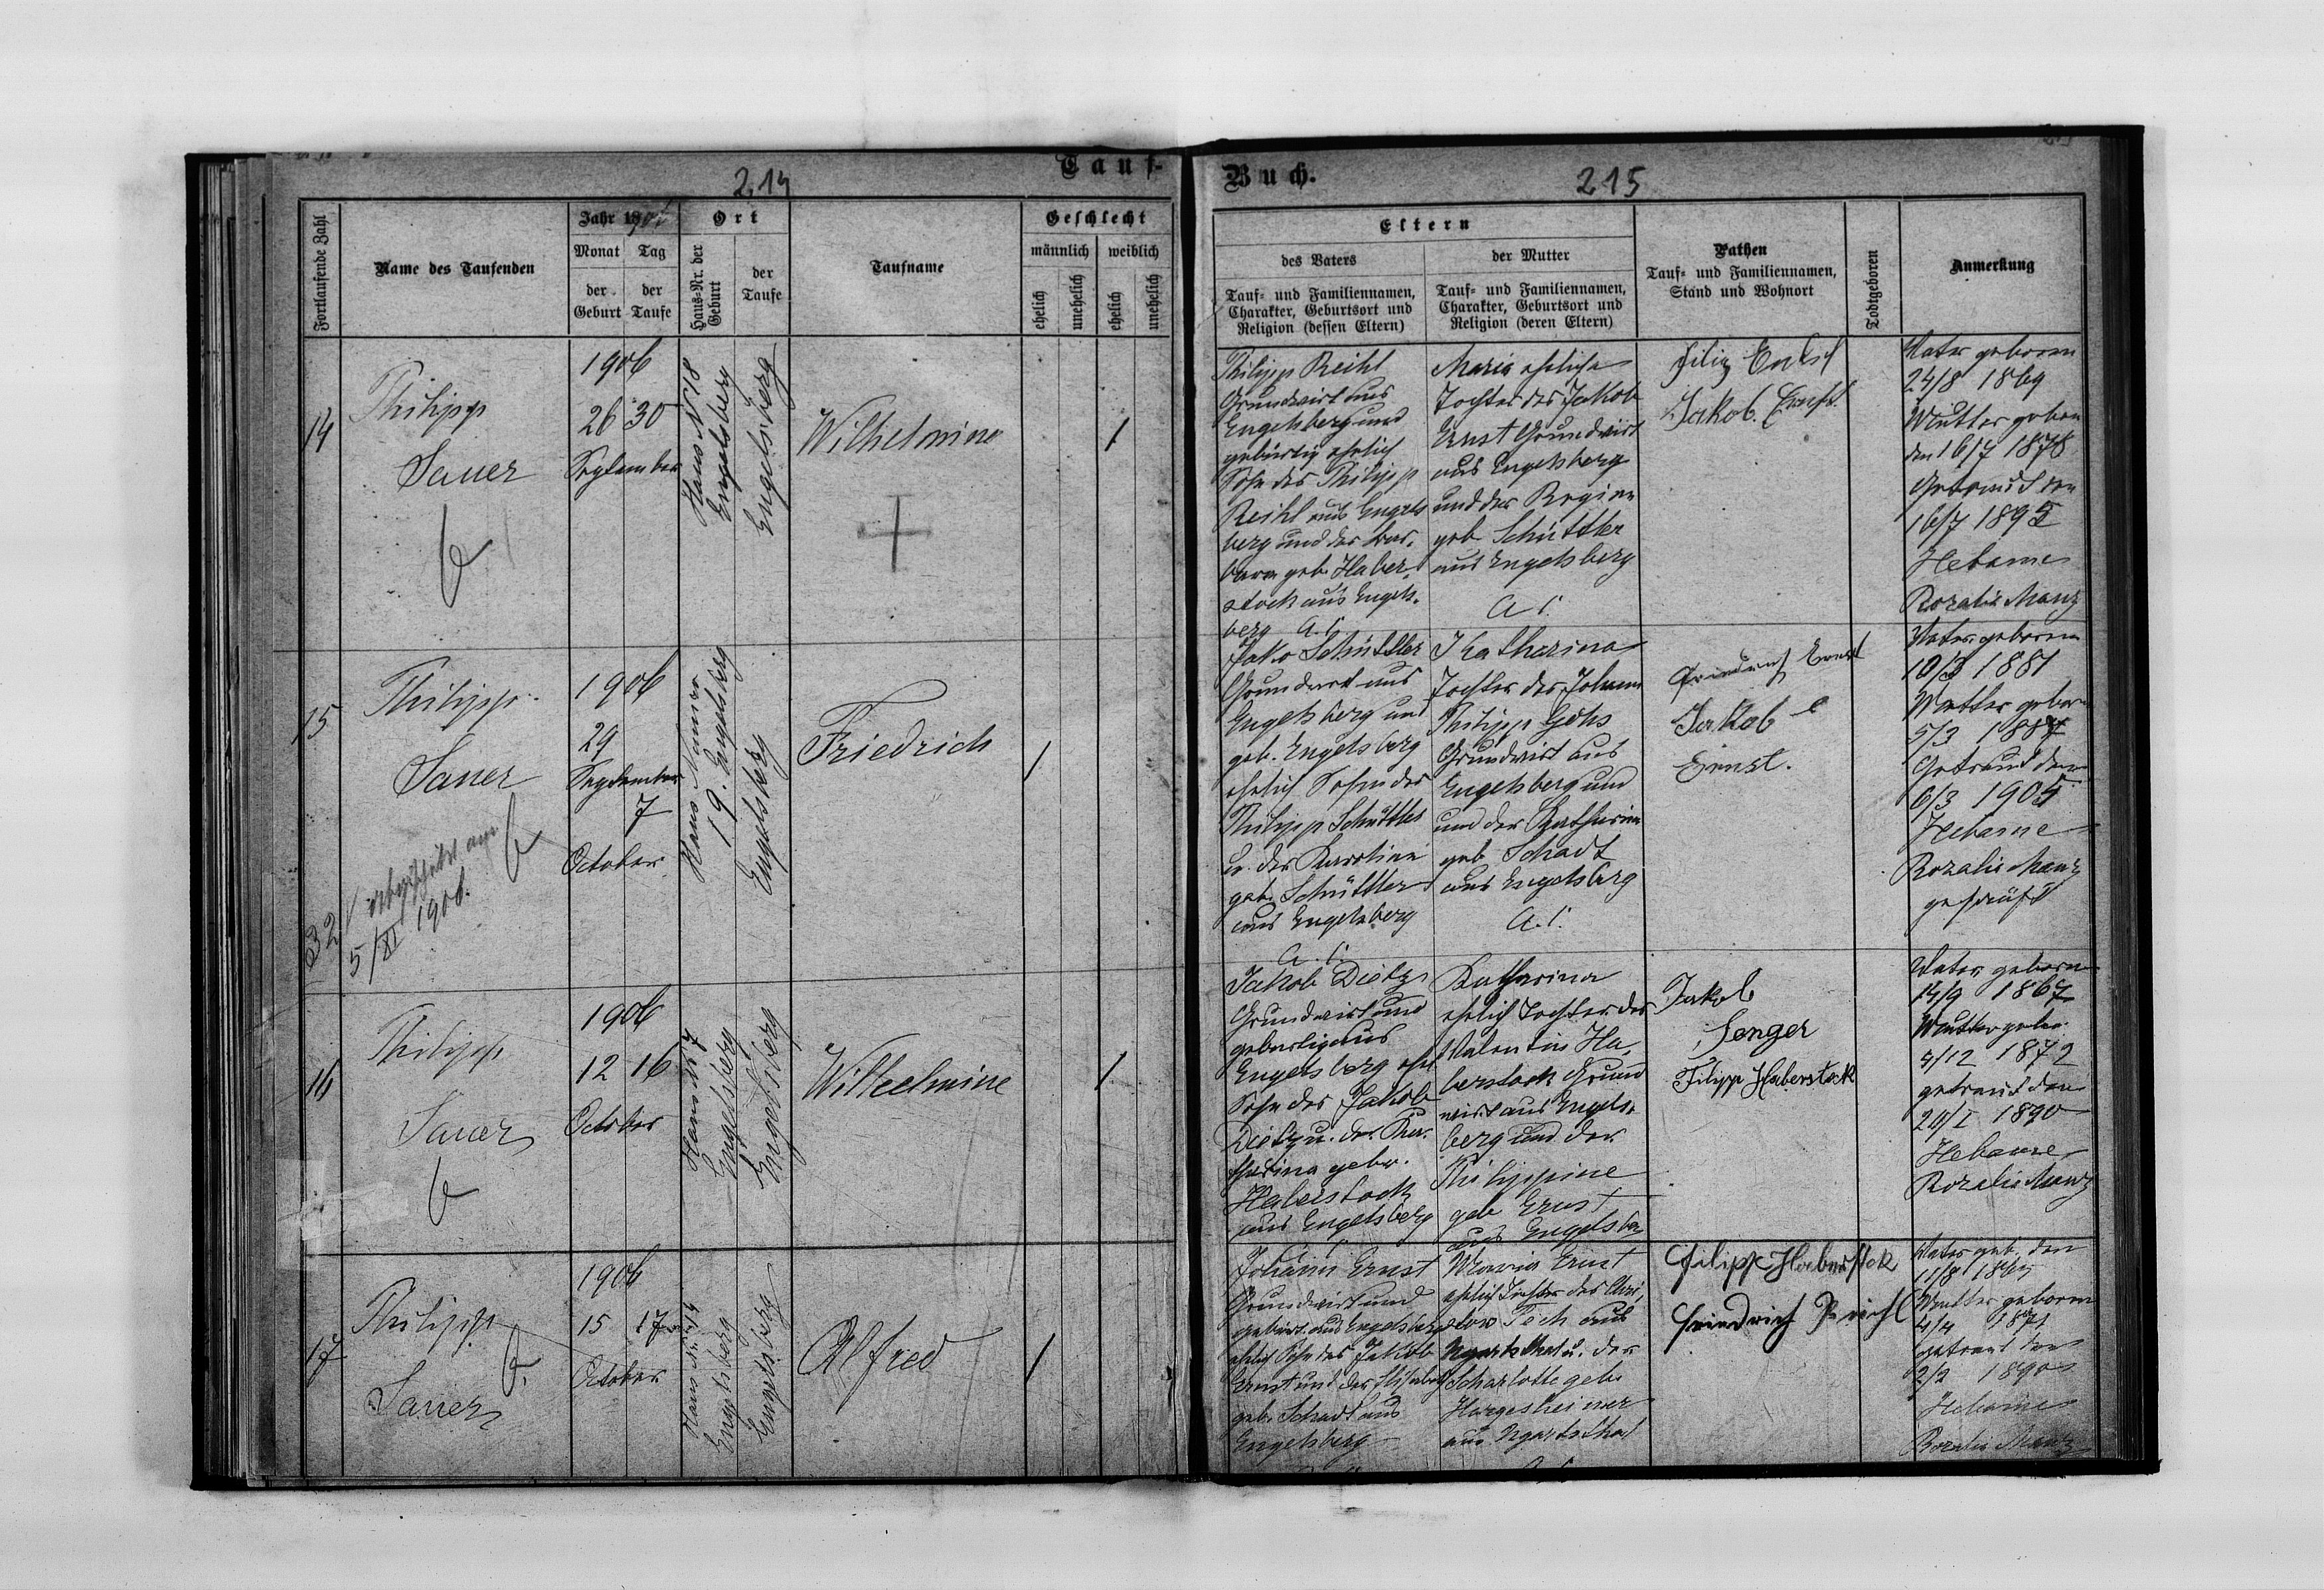 214
Tauf-
Fortlaufende Zahl
Name des Taufenden
Jahr 1906
Monat
Tag
der
Geburt
der
Taufe
Ort
Haus-Nr. der
Geburt
der
Taufe
Taufname
Geschlecht
männlich
weiblich
ehelich
unehelich
ehelich
unehelich
14
Philipp
Sauer
1906
26 30
September
Haus N 18
Engelsberg
Engelsberg
Wilhelmine
1
15
Philipp
Sauer
5/XI 1906.
32
1906
29
September
7
October
Haus Numer
19. Engelsberg
Engelsberg
Friedrich
1
16
Philipp
Sauer
1906
12 16
October
Haus N 7
Engelsberg
Engelsberg
Wilhelmine
1
17
Philipp
Sauer
1906
15 17
October
Haus Nr 14
Engelsberg
Engelsberg
Alfred
1
Buch.
215
Eltern
des Vaters
Tauf- und Familiennamen,
Charakter, Geburtsort und
Religion (dessen Eltern)
der Mutter
Tauf- und Familiennamen,
Charakter, Geburtsort und
Religion (deren Eltern)
Pathen
Tauf- und Familiennamen,
Stand und Wohnort
Todtgeboren
Anmerkung
Philipp Reihl
Grundwirt aus
Engelsberg und
gebürtig ehelich
Sohn des Philipp
Reihl aus Engels
berg und der Bar-
bara geb. Haber-
stock aus Engels-
berg A. C.
Maria eheliche
Tochter des Jakob
Ernst Grundwirt
aus Engelsberg
und der Regina
geb Schüttler
aus Engelsberg
A C.
Jakob. Ernst.
Vater geboren
24/8 1869
Mutter gebor
den 16/7 1878
Getraut den
16/7 1895
Hebame
Rozalie Manz
Jako Schüttler
Grundwirt aus
Engelsberg und
geb. Engelsberg
ehelich Sohn des
Philipp Schüttler
u. der Karolina
geb. Schüttler
aus Engelsberg
A. C.
Katharina
Tochter des Johann
Philipp Göhs
Grundwirt aus
Engelsberg und
und der Katharina
geb Schadt
aus Engelsberg
A. C.
Friedrich Ernst
Jakob
Ernst.
Vater geboren
10/3 1881
Mutter gebor
5/3 1887
Getraut den
6/3 1905
Hebame
Rozalie Manz
geprüft
Jakob Dietz
Grundwirt und
gebürtig aus
Engelsberg ehl
Sohn des Jakob
Dietz u. der Ka-
tharina gebor.
Haberstock
aus Engelsberg
Katharina
ehelich Tochter des
Valentin Ha-
berstock Grund
wirt aus Engels-
berg und der
Philippine
geb Ernst
aus Engelsbe
Jakob
Senger
Filipp Haberstock
Vater geboren
14/9 1867
Mutter gebor.
4/12 1872
getraut den
20/I 1890
Hebame
Rozalie Manz
Johann Ernst
Grundwirt und
gebürt. aus Engelsberg
ehelich Sohn des Jakob
Ernst und der Elisabeth
geb. Schadt aus
Engelsberg
Maria Ernst
ehelich Tochter des
aus
Ugartsthal u. der
Scharlotte geb.
Hargesheimer
aus Ugartsthal
Filipp Haberstok
Friedrich Reichl
Vater geb. den
11/8 1865
Mutter geboren
4/4 1871
getraut den
2/2 1890
Hebame
Rozalie Manz